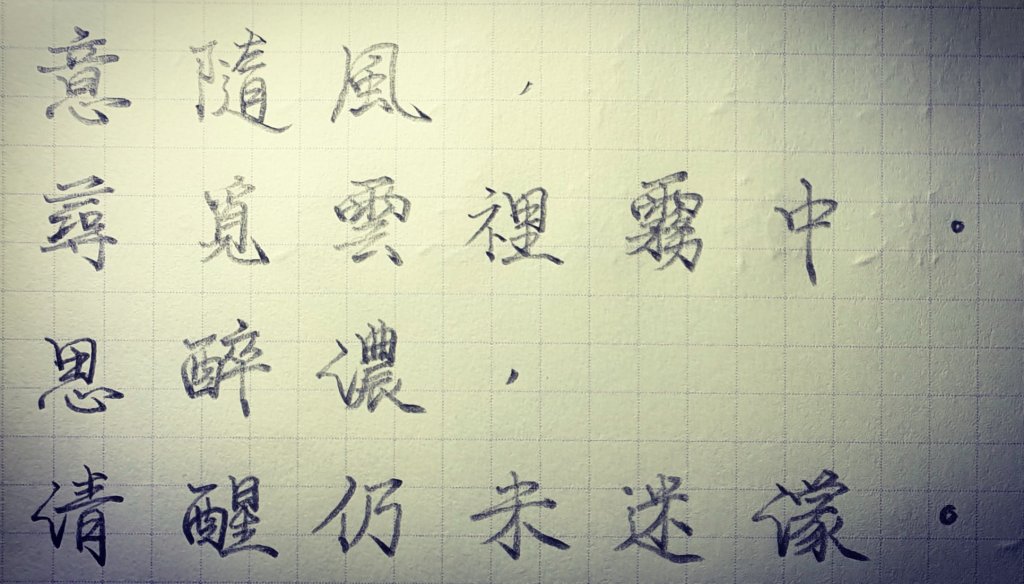 意隨風，
尋覓雲裡霧中。
思醉濃，
清醒仍未迷濛。